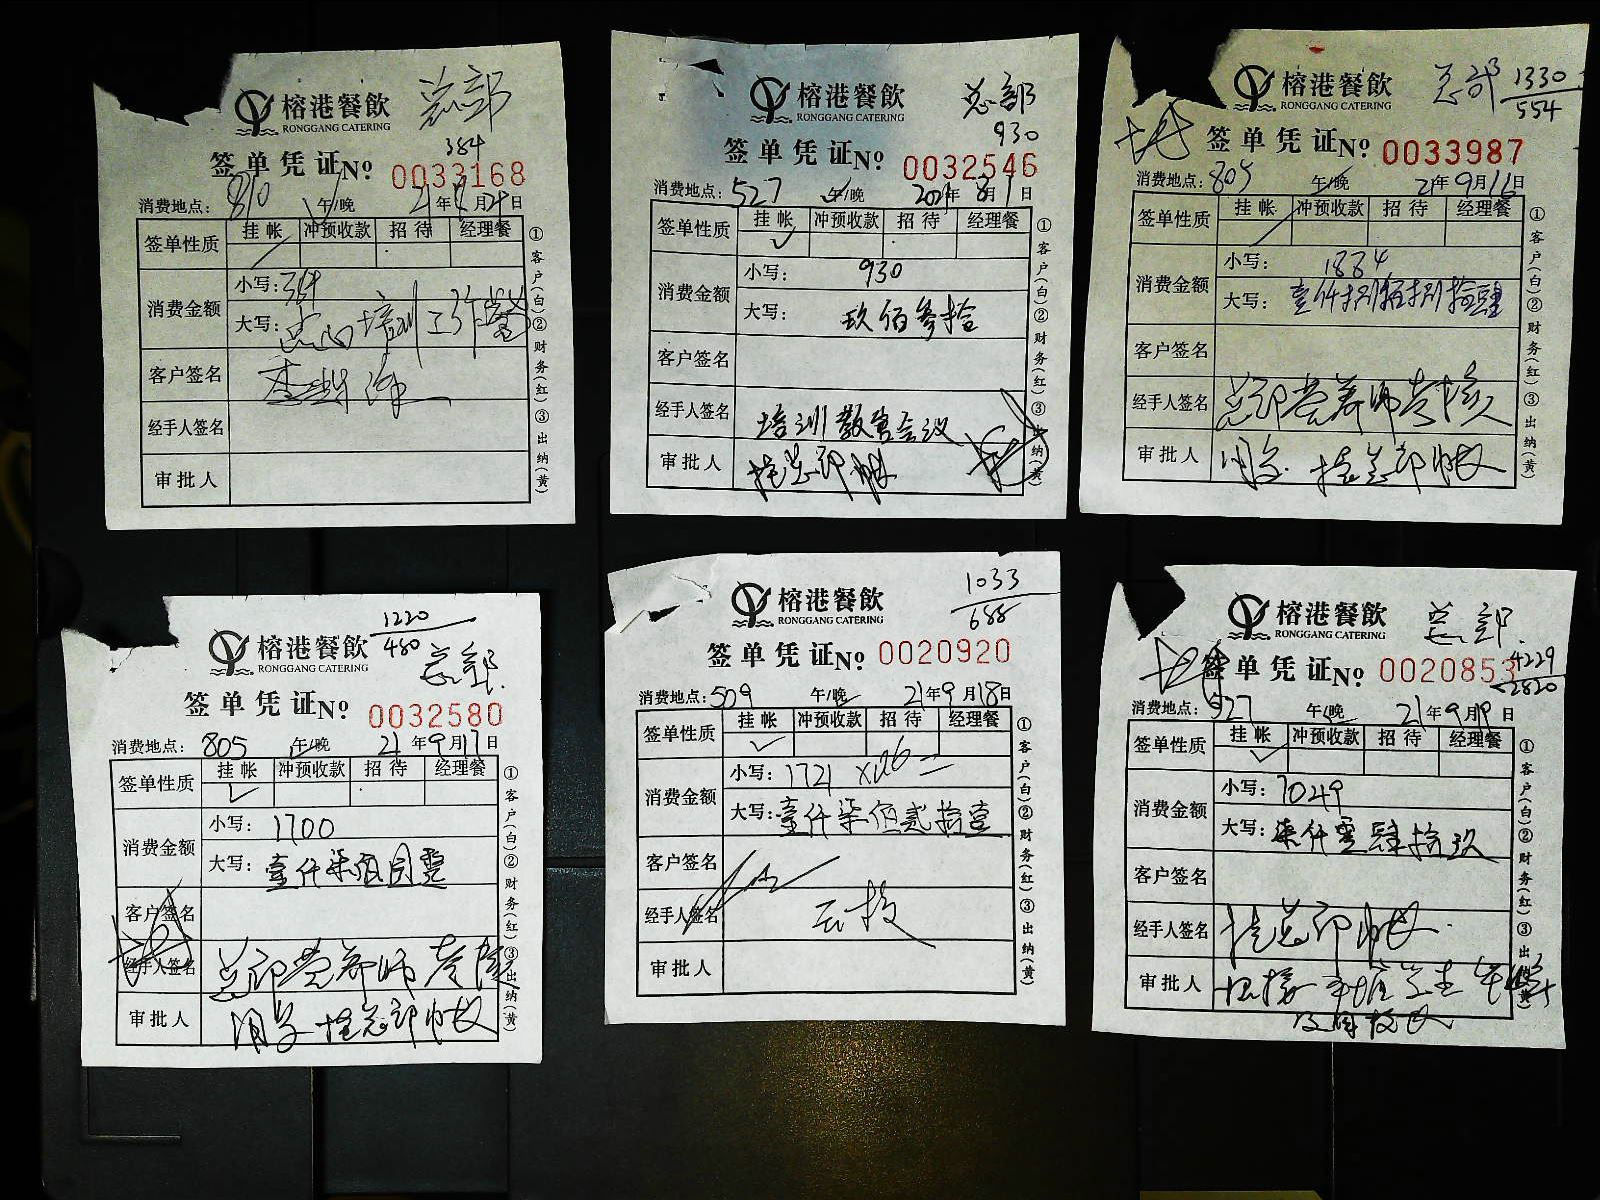 榕港餐飲 总部
RONGGANG CATERING
384
签单凭证No 0033168
消费地点: 810 午/晚 21年 月 日
签单性质 挂帐 冲预收款 招待 经理餐
消费金额 小写: 384
大写: 培训工作餐
客户签名
经手人签名
审批人
①客户(白)②财务(红)③出纳(黄)
榕港餐飲 总部
RONGGANG CATERING
930
签单凭证No 0032546
消费地点: 527 午/晚 2021年8月1日
签单性质 挂帐 冲预收款 招待 经理餐
消费金额 小写: 930
大写: 玖佰叁拾
客户签名
经手人签名 培训 会议
审批人 挂总部帐
①客户(白)②财务(红)③出纳(黄)
榕港餐飲 总部 1330
RONGGANG CATERING 554
签单凭证No 0033987
消费地点: 805 午/晚 21年9月16日
签单性质 挂帐 冲预收款 招待 经理餐
消费金额 小写: 1884
大写: 壹仟捌佰捌拾肆
客户签名
经手人签名 总部营养师考核
审批人 用餐 挂总部帐
①客户(白)②财务(红)③出纳(黄)
1220
榕港餐飲 480
RONGGANG CATERING 总部
签单凭证No 0032580
消费地点: 805 午/晚 21年9月17日
签单性质 挂帐 冲预收款 招待 经理餐
消费金额 小写: 1700
大写: 壹仟柒佰圆零
客户签名
经手人签名 总部营养师考核
审批人 用餐 挂总部帐
①客户(白)②财务(红)③出纳(黄)
1033
榕港餐飲 688
RONGGANG CATERING
签单凭证No 0020920
消费地点: 509 午/晚 21年9月18日
签单性质 挂帐 冲预收款 招待 经理餐
消费金额 小写: 1721
大写: 壹仟柒佰贰拾壹
客户签名
经手人签名
审批人
①客户(白)②财务(红)③出纳(黄)
榕港餐飲 总部
RONGGANG CATERING 4229
签单凭证No 0020853 2820
消费地点: 527 午/晚 21年9月19日
签单性质 挂帐 冲预收款 招待 经理餐
消费金额 小写: 7049
大写: 柒仟零肆拾玖
客户签名
经手人签名 挂总部帐
审批人
①客户(白)②财务(红)③出纳(黄)